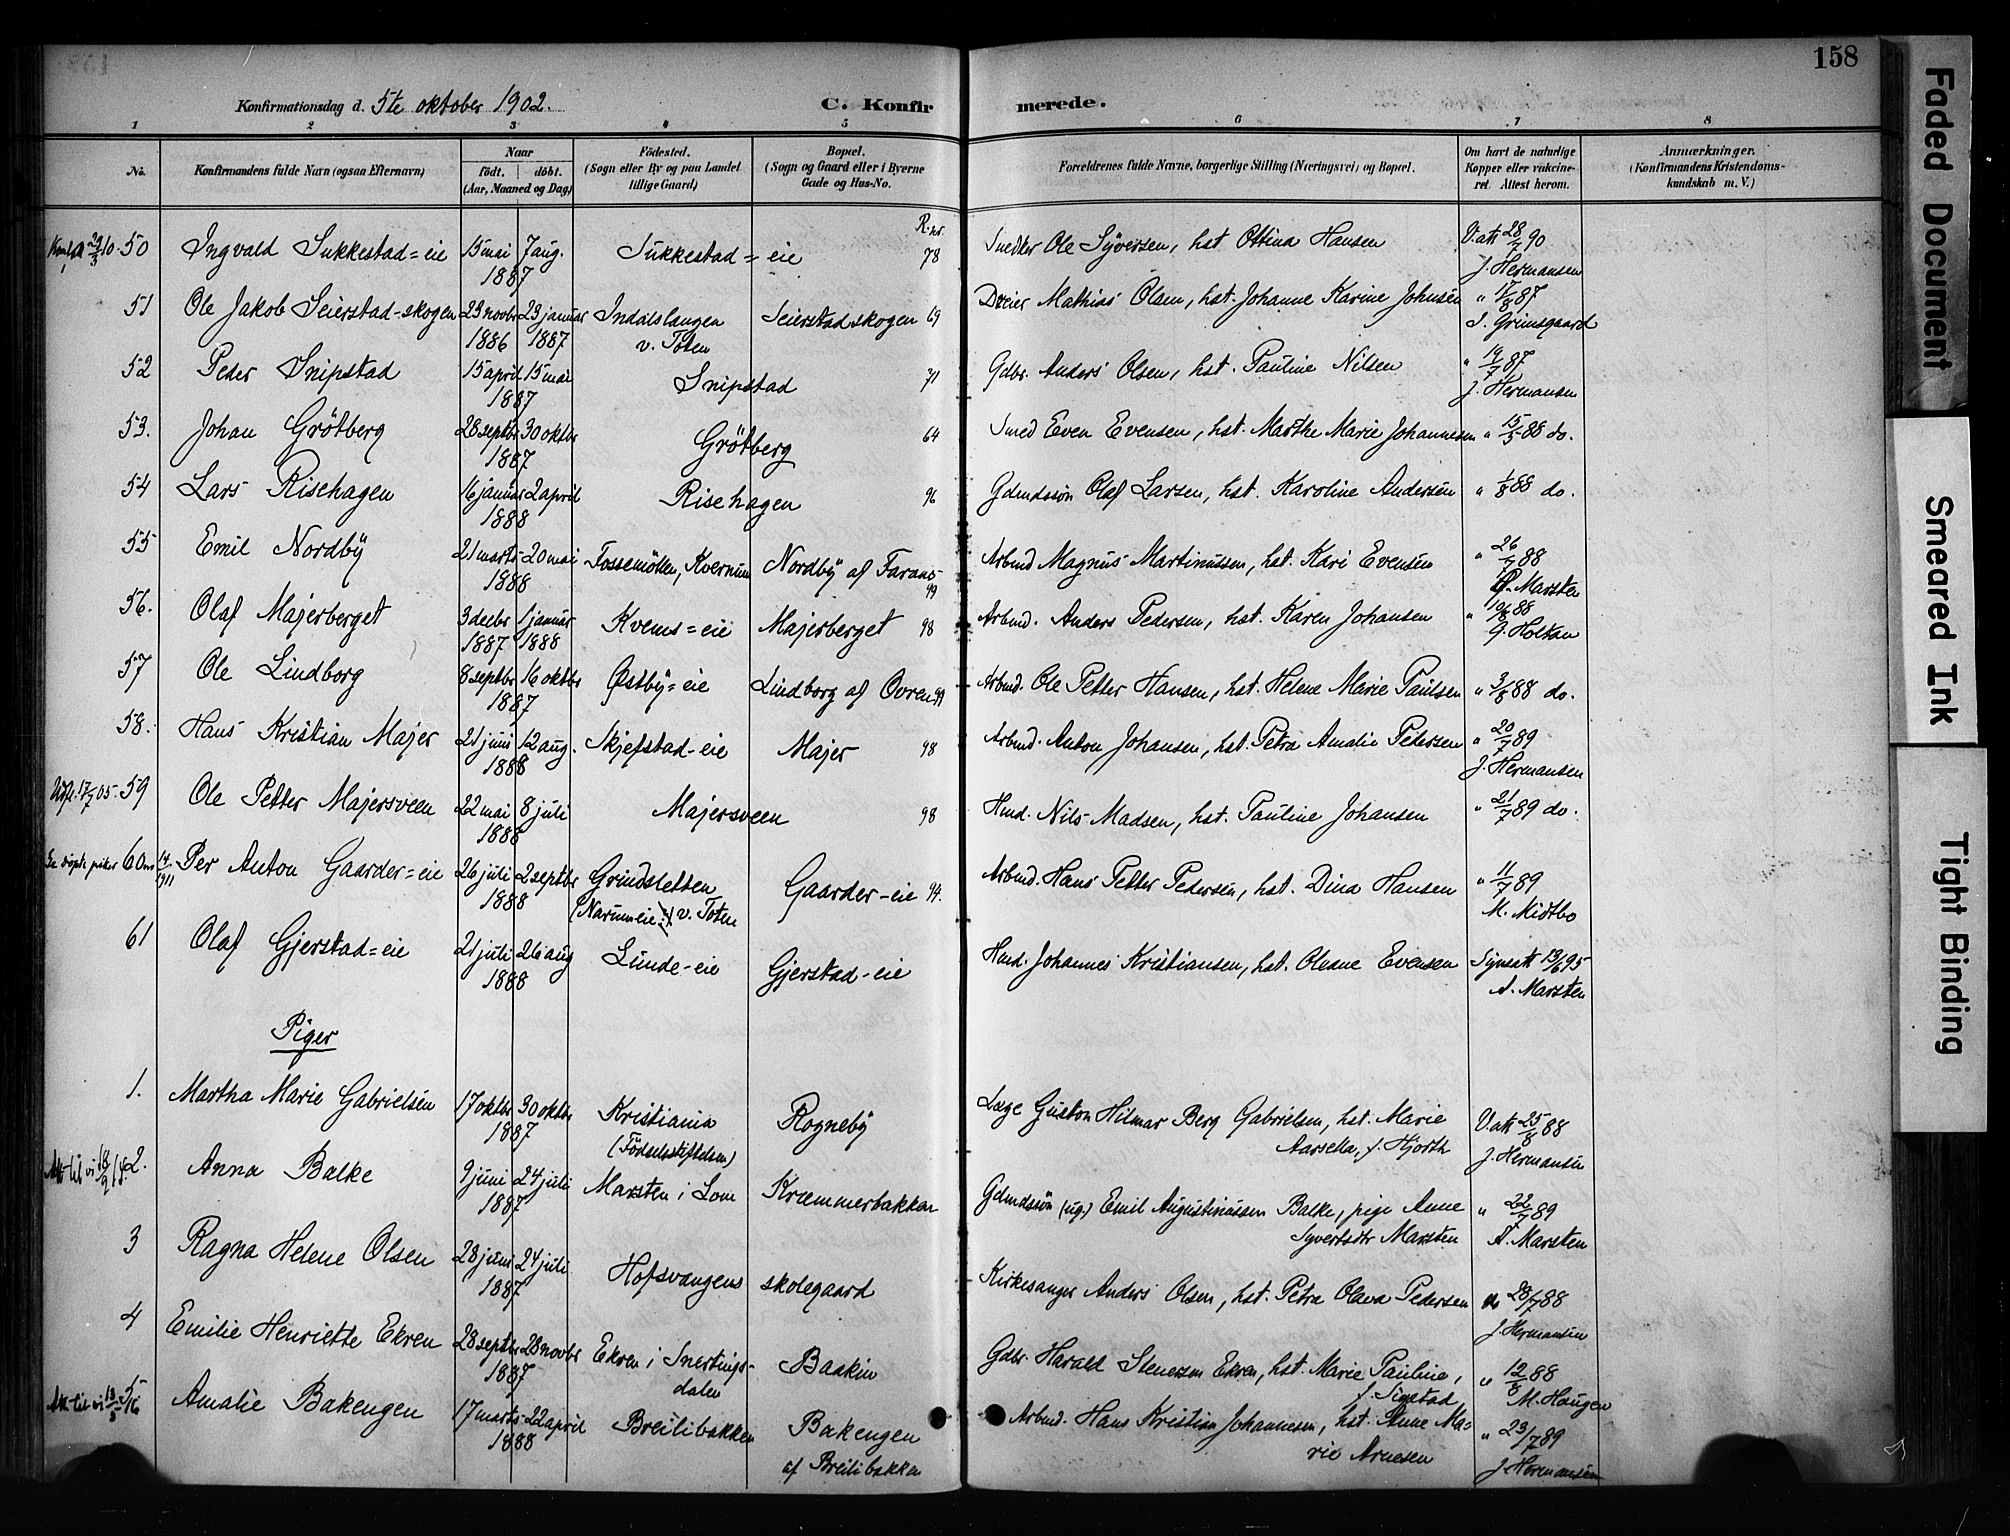 158
Konfirmationsdag d. 5te oktober 1902. C. Konfirmerede.
1 2 3 4 5 6 7 8
No. Konfirmandens fulde Navn (ogsaa Efternavn) Naar født. døbt. (Aar, Maaned og Dag) Fødested. (Sogn eller By og paa Landet tillige Gaard) Bopæl. (Sogn og Gaard eller i Byerne Gade og Hus-No. Forældrenes fulde Navne, borgerlige Stilling (Næringsvei) og Bopæl. Om havt de naturlige Kopper eller vakcineret. Attest herom. Anmærkninger. (Konfirmandens Kristendomskundskab m. V.)
R. nr.
50 Ingvald Sukkestad=eie 15 mai 7 aug. 1887 Sukkestad=eie 78 Snedker Ole Syversen, hst. Ottina Hansen V. att 28/7 90 J. Hermansen
51 Ole Jakob Seierstad-skogen 23 novbr 1886 23 januar 1887 Indalslangen v. Toten Seierstadskogen 69 Dreier Mathias Olsen, hst. Johanne Karine Johnsen " 17/8 87 S. Grimsgaard
52 Peder Snipstad 15 april 15 mai 1887 Snipstad 71 Gdbr. Anders Olsen, hst. Pauline Nilsen " 19/7 87 J. Hermansen
53. Johan Grötberg 28 septbr 30 oktbr 1887 Grötberg 64 Smed Even Evensen, hst. Marthe Marie Johannesen " 15/5 88 do.
54 Lars Risehagen 16 januar 2 april 1888 Risehagen 96 Gdmdssön Olaf Larsen, hst. Karoline Andersen " 1/8 88 do.
55 Emil Nordby 21 marts 20 mai 1888 Fossemöllen, Kvernum Nordby af Farans 99 Arbmd Magnus Martinussen, hst. Kari Evensen " 26/7 88 P. Marsten
56. Olaf Majerberget 3 decbr 1887 1 januar 1888 Kvems=eie Majerberget 98 Arbmd. Anders Pedersen, hst. Karen Johansen " 10/8 88 G. Holtan
57 Ole Lindborg 8 septbr 16 oktbr 1887 Østby=eie Lindborg af Ovren 99 Arbmd. Ole Petter Hansen, hst. Helene Marie Paulsen " 3/8 88 do.
58. Hans Kristian Majer 21 juni 12 aug. 1888 Skjefstad-eie Majer 98 Arbmd. Anton Johansen, hst. Petra Amalie Pedersen " 20/7 89 J. Hermansen
Udfl. 17/7 05. 59 Ole Petter Majersveen 22 mai 8 juli 1888 Majersveen 98 Hmd. Nils Madsen, hst. Pauline Johansen " 21/7 89 do.
60 Per Anton Gaarder=eie 26 juli 2 septbr 1888 Grindstetten (Narumeie) v. Toten Gaarder-eie 94. Arbmd. Hans Petter Pedersen, hst. Dina Hansen " 11/7 89 M. Midtbo
61 Olaf Gjerstad=eie 21 juli 26 aug 1888 Lunde-eie Gjerstad-eie Hmd. Johannes Kristiansen, hst. Oleane Evensen Synsatt 13/6 95 A. Marsten
Piger
1. Martha Marie Gabrielsen 17 oktbr 30 oktbr 1887 Kristiania (Födselsstiftelsen) Rogneby Læge Guston Hilmar Berg Gabrielsen, hst. Marie Aarsella, f. Hjorth V. att 25/8 88 J. Hermansen
2. Anna Balke 9 juni 24 juli 1887 Marsten i Lom Kræmmerbakken Gdmdssön (ug.) Emil Augustinussen Balke, pige Anne Syvertsdtr Marsten " 22/7 89 A. Marsten
3 Ragna Helene Olsen 28 juni 24 juli 1887 Hofsvangens skolegaard Kirkesanger Anders Olsen, hst. Petra Olava Pedersen " 28/7 88 J. Hermansen
4 Emilie Henriette Ekren 28 septbr 28 novbr 1887 Ekren i Snertingsdalen Baakin Gdbr. Harald Stenersen Ekren, hst. Marie Pauline, f. Sigstad " 12/8 88 M. Haugen
5 Amalie Bakengen 17 marts 22 april 1888 Breilibakken Bakengen af Breilibakken Arbmd. Hans Kristian Johannesen, hst. Anne Marie Arnesen " 23/7 89 J. Hermansen
Faded Document
Smeared Ink
Tight Binding